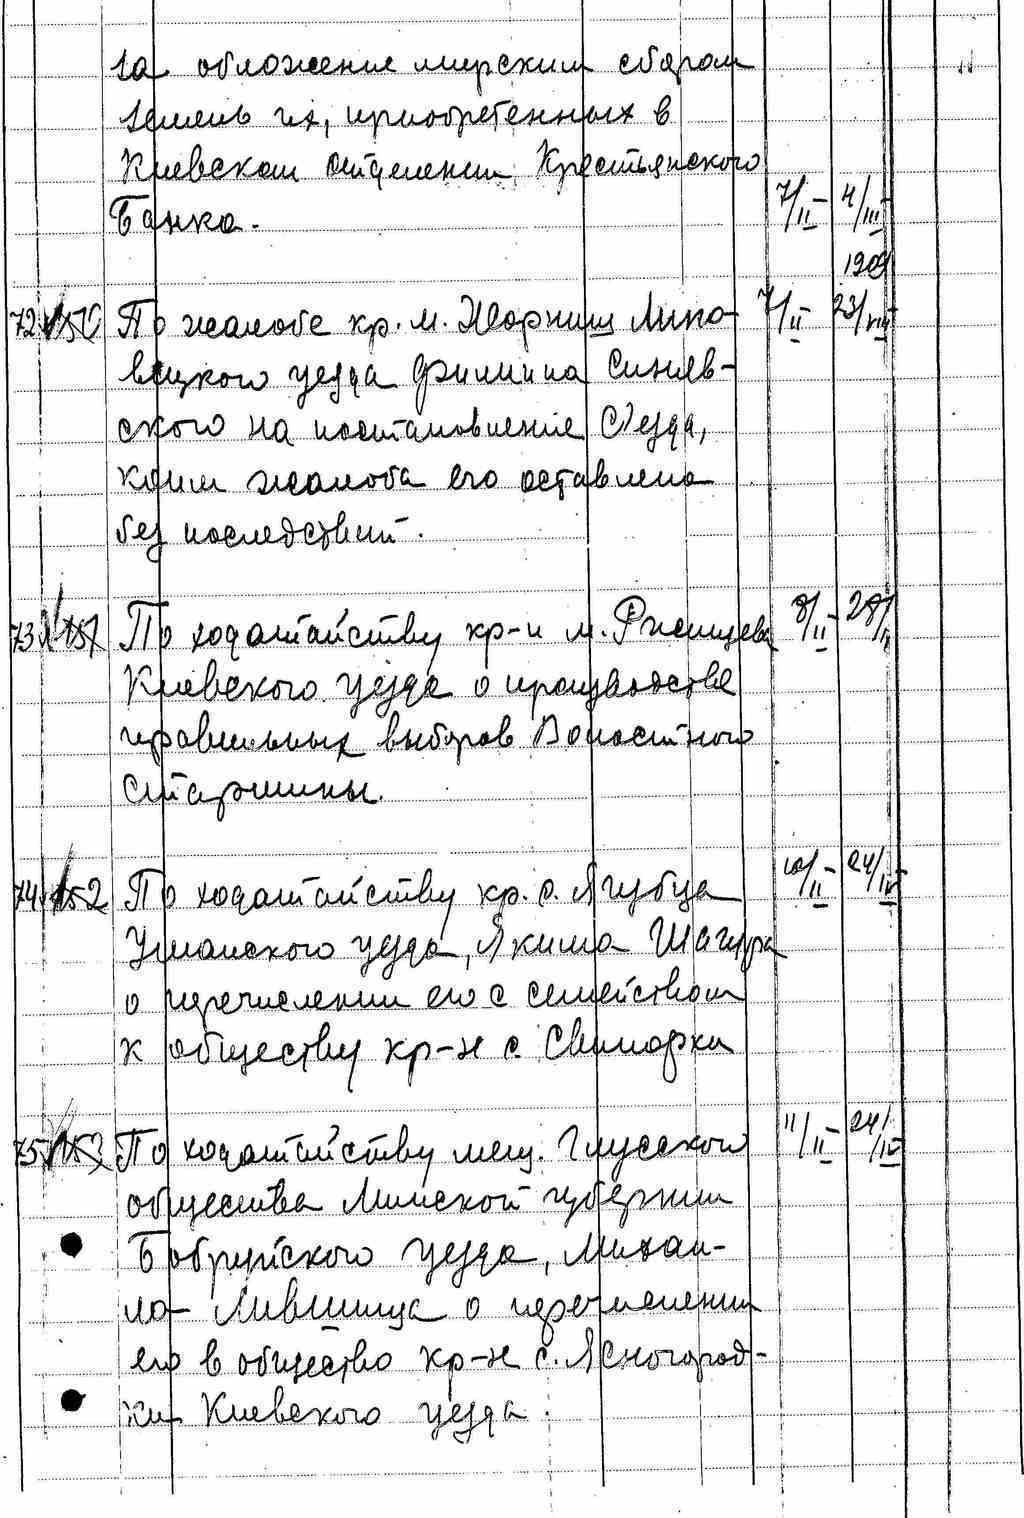 за обложение мирским сбором
земель их, приобретенных в
Киевском отделении Крестьянского
Банка. 7/II 4/III
1909
72 150 По жалобе кр. м. Жорнищ Липо- 7/II 23/VIII
вецкого уезда Филиппа Синяв-
ского на постановление Съезда,
коим жалоба его оставлена
без последствий.
73 151 По ходатайству кр-н м. Ржищева 8/II 28/
Киевского уезда о производстве
правильных выборов Волостного
старшины.
74 152 По ходатайству кр. с. Ягубца 10/II 24/IV
Уманского уезда, Якима
о перечислении его с семейством
к обществу кр-н с. Свинарки
75 153 По ходатайству мещ. Глусского 11/II 24/IV
общества Минской губернии
Бобруйского уезда, Михаи-
ла Лившица о перечислении
его в общество кр-н с. Ясногород-
ки Киевского уезда.